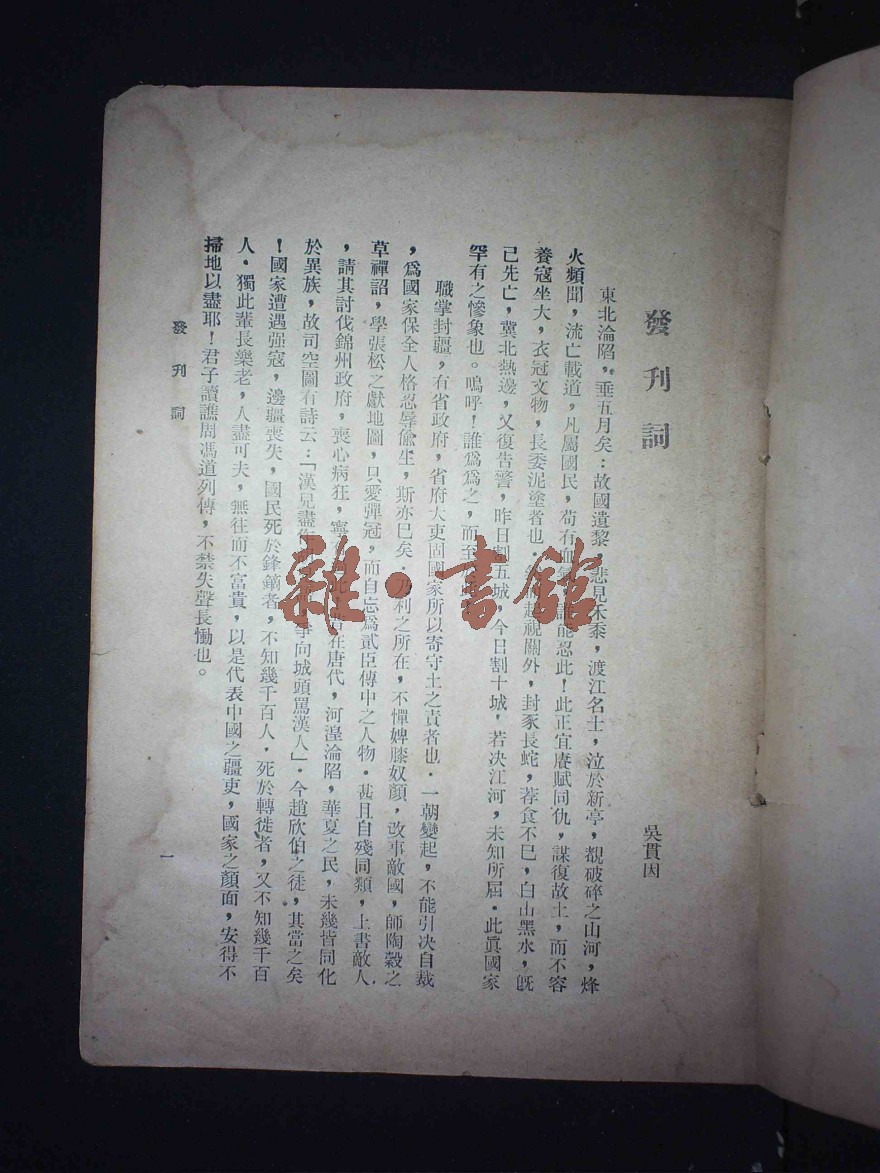 發刊詞
吳貫因
東北淪陷，垂五月矣：故國遺黎，悲見禾黍，渡江名士，泣於新亭，覩破碎之山河，烽
火頻聞，流亡載道，凡屬國民，苟有血能忍此！此正宜賡賦同仇，謀復故土，而不容
養寇坐大，衣冠文物，長委泥塗者也．視關外，封豕長蛇，荐食不已，白山黑水，旣
已先亡，冀北熱邊，又復告警，昨日割五城，今日割十城，若決江河，未知所屆．此眞國家
罕有之慘象也。嗚呼！誰爲爲之，而至
職掌封疆，有省政府，省府大吏固國家所以寄守土之責者也．一朝變起，不能引決自裁
，爲國家保全人格忍辱偸生，斯亦已矣．乃利之所在，不憚婢膝奴顏，改事敵國，師陶穀之
草禪詔，學張松之獻地圖，只愛彈冠，而自忘爲貳臣傳中之人物．甚且自殘同類，上書敵人
，請其討伐錦州政府，喪心病狂，寧在唐代，河湟淪陷，華夏之民，未幾皆同化
於異族，故司空圖有詩云：「漢兒盡作爭向城頭罵漢人」．今趙欣伯之徒，其當之矣
！國家遭遇强寇，邊疆喪失，國民死於鋒鏑者，不知幾千百人．死於轉徙者，又不知幾千百
人．獨此輩長樂老，人盡可夫，無往而不富貴，以是代表中國之疆吏，國家之顏面，安得不
掃地以盡耶！君子讀譙周馮道列傳，不禁失聲長慟也。
發刊詞
一
雜・書館